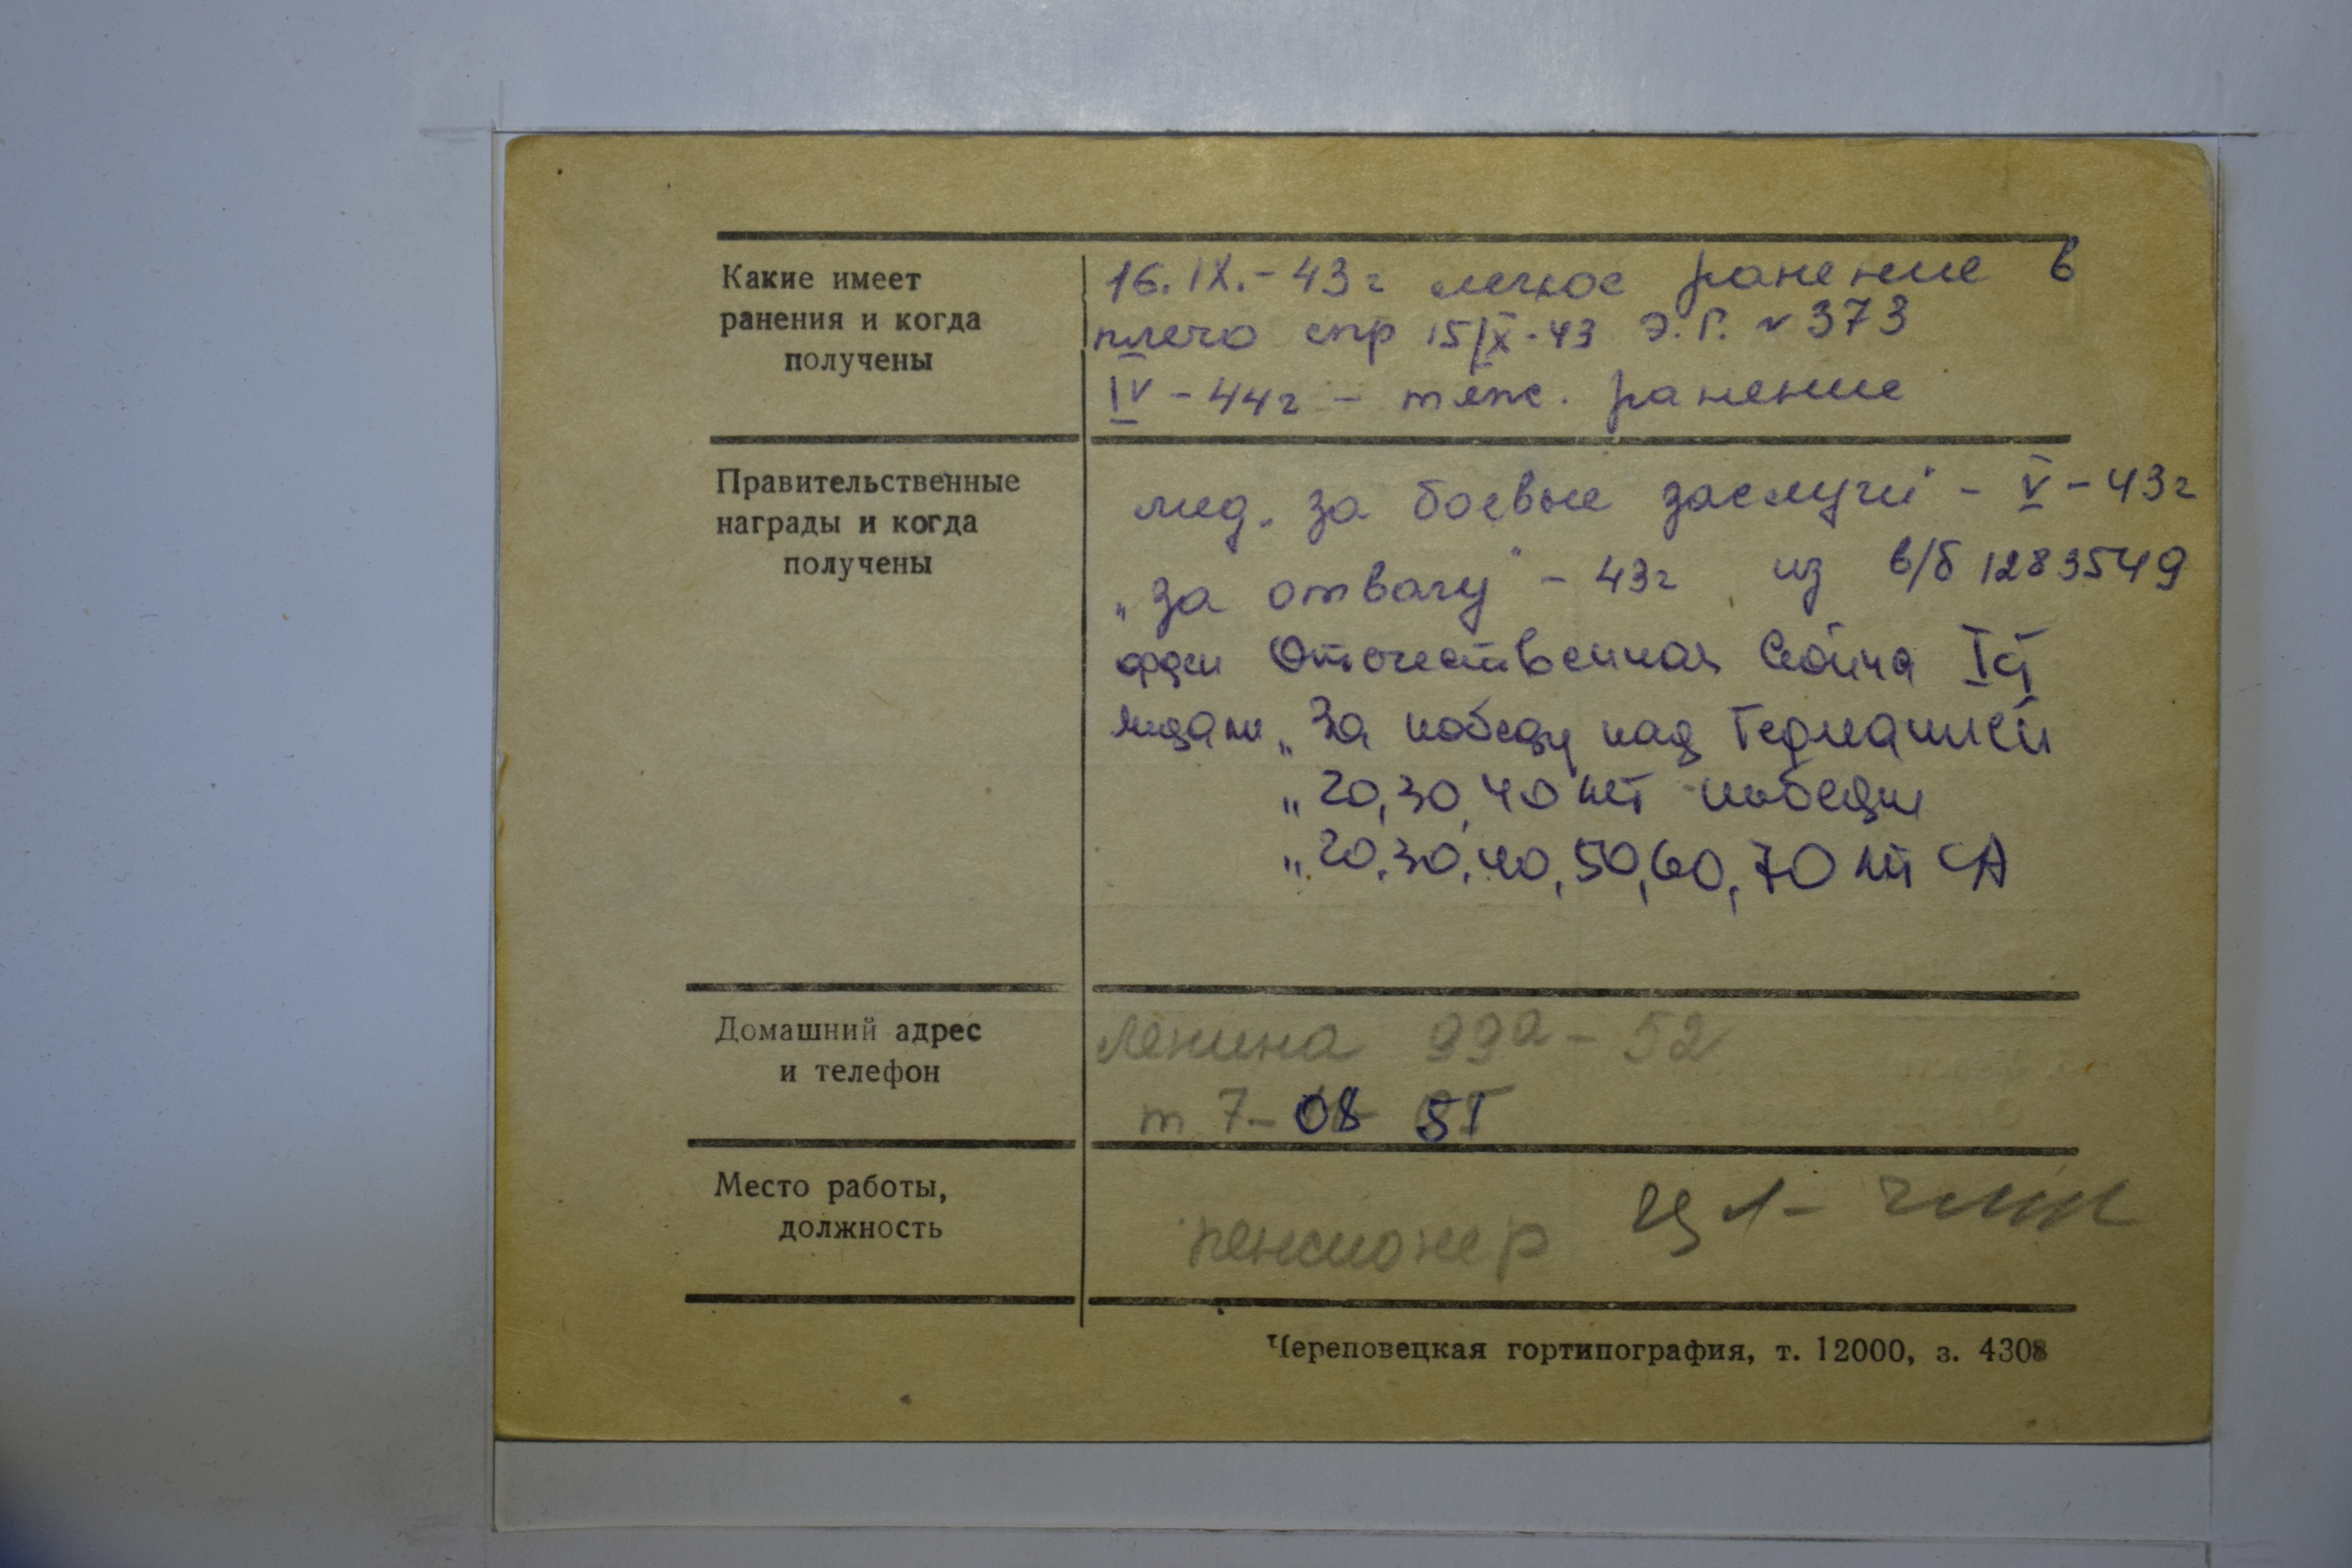 Какие имеет
ранения и когда
получены
16.IX.-43г легкое ранение в
плечо спр 15/IX-43 Э.Г. № 373
IV - 44г - тяж. ранение
Правительственные
награды и когда
получены
мед. за боевые заслуги" - V - 43г
"за отвагу" - 43г из в/б 1283549
орден Отечественная война I ст
медали „За победу над Германией
„20,30,40 лет победы
„20,30,40,50,60,70 лет СА
Домашний адрес
и телефон
Ленина 99а - 52
т 7-08 51
Место работы,
должность
пенсионер
Череповецкая гортипография, т. 12000, з. 4308